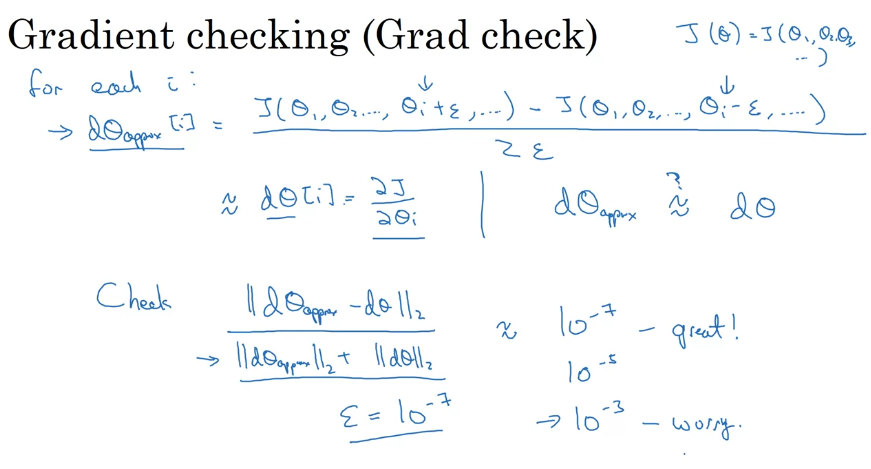 Gradient checking (Grad check)
J(θ) = J(θ₁, θ₂, θ₃, ...)
for each i:
→ dθapprox[i] = J(θ₁, θ₂, ..., θᵢ+ε, ...) - J(θ₁, θ₂, ..., θᵢ-ε, ...)
2ε
≈ dθ[i] = ∂J/∂θᵢ | dθapprox ≈? dθ
Check ||dθapprox - dθ||₂
→ ||dθapprox||₂ + ||dθ||₂
≈ 10⁻⁷ - great!
10⁻⁵
→ 10⁻³ - worry.
ε = 10⁻⁷